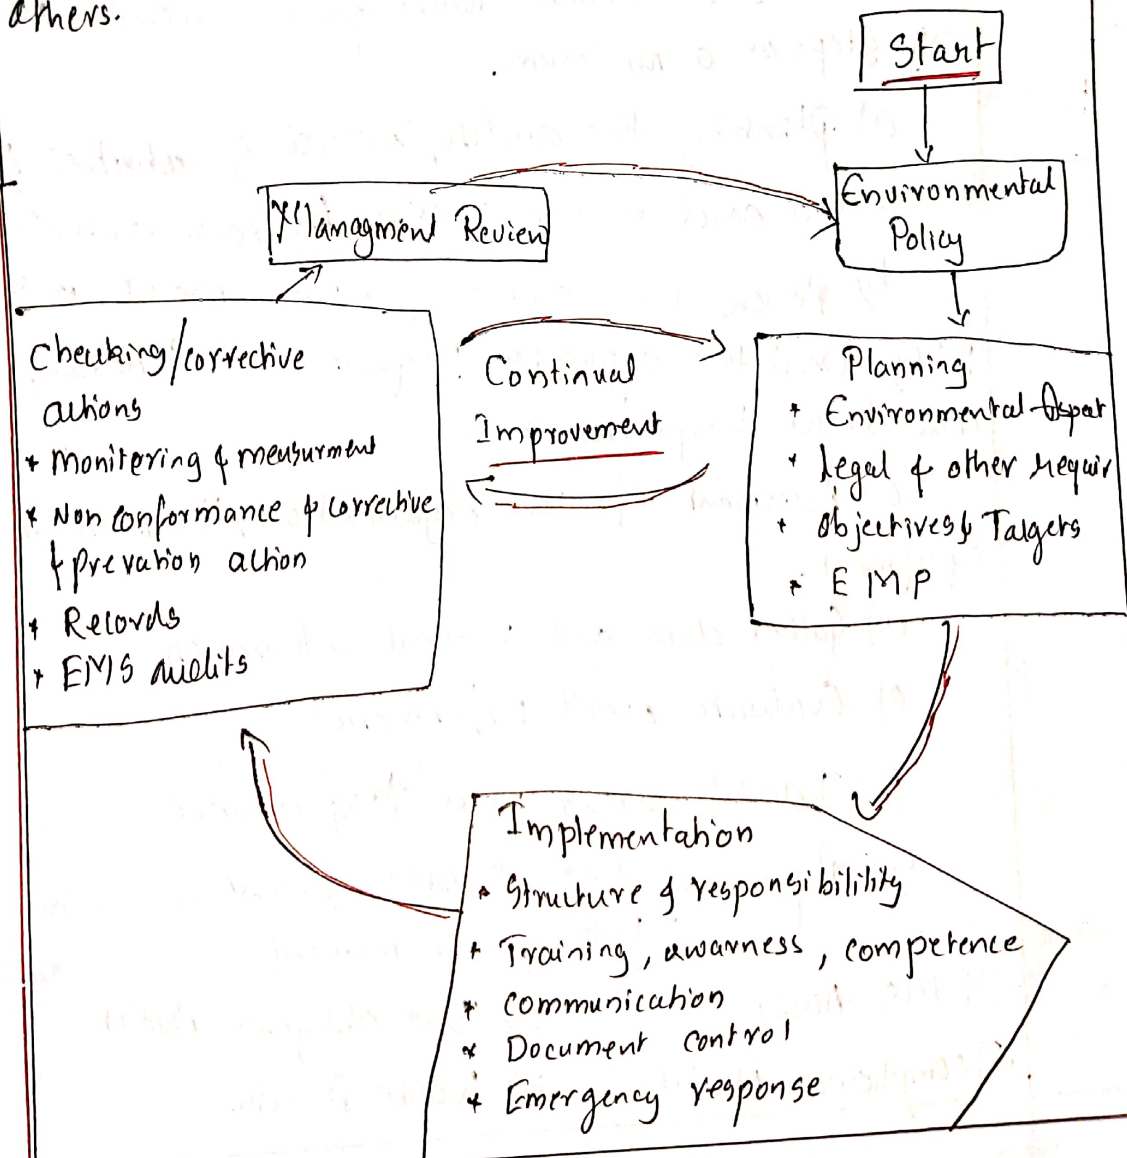 others.
Start
Environmental
Policy
Managment Review
Checking/corrective
actions
* Monitering & measurment
* Non conformance & corrective
& prevation action
* Records
* EMS audits
Continual
Improvement
Planning
* Environmental Aspect
* Legal & other requir
* Objectives & Targets
* EMP
Implementation
* Structure & responsibilility
* Training, awarness, competence
* Communication
* Document control
* Emergency response